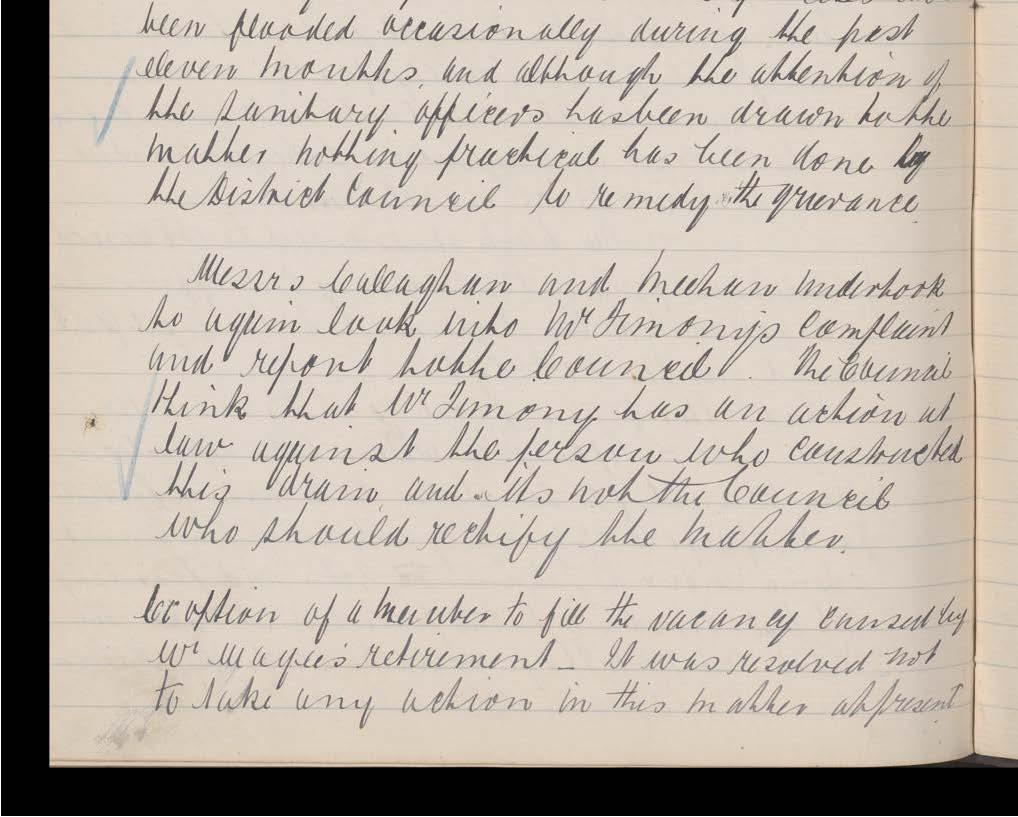 been flooded occasionally during the past
eleven months, and although the attention of
the sanitary officers has been drawn to the
matter nothing practical has been done by
the District Council to remedy the grievance

Messrs Callaghan and Meehan undertook
to again look into Mr Timony's complaint
and report to the Council. The Council
think that Mr Timony has an action at
law against the person who constructed
this drain and its not the Council
who should rectify the matter.

Co option of a member to fill the vacancy caused by
Mr Magee's retirement - It was resolved not
to take any action in this matter at present